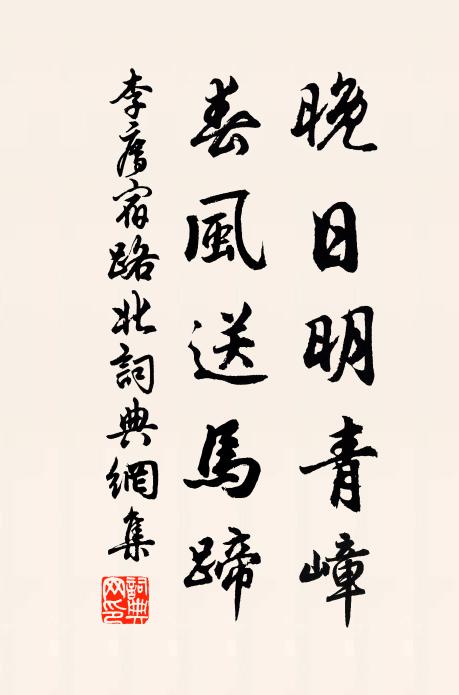 晚日明青嶂
春風送馬蹄
李廌宿路北詞典網集
詞典網印